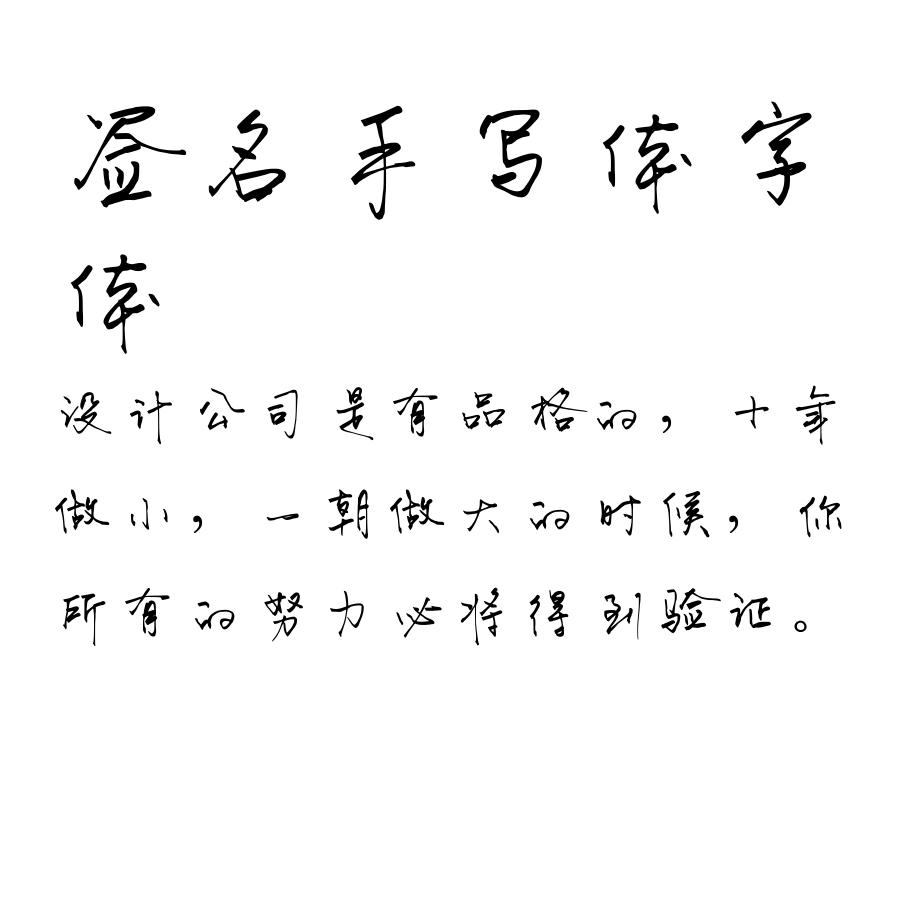 签名手写体字
体
设计公司是有品格的，十年
做小，一朝做大的时候，你
所有的努力必将得到验证。